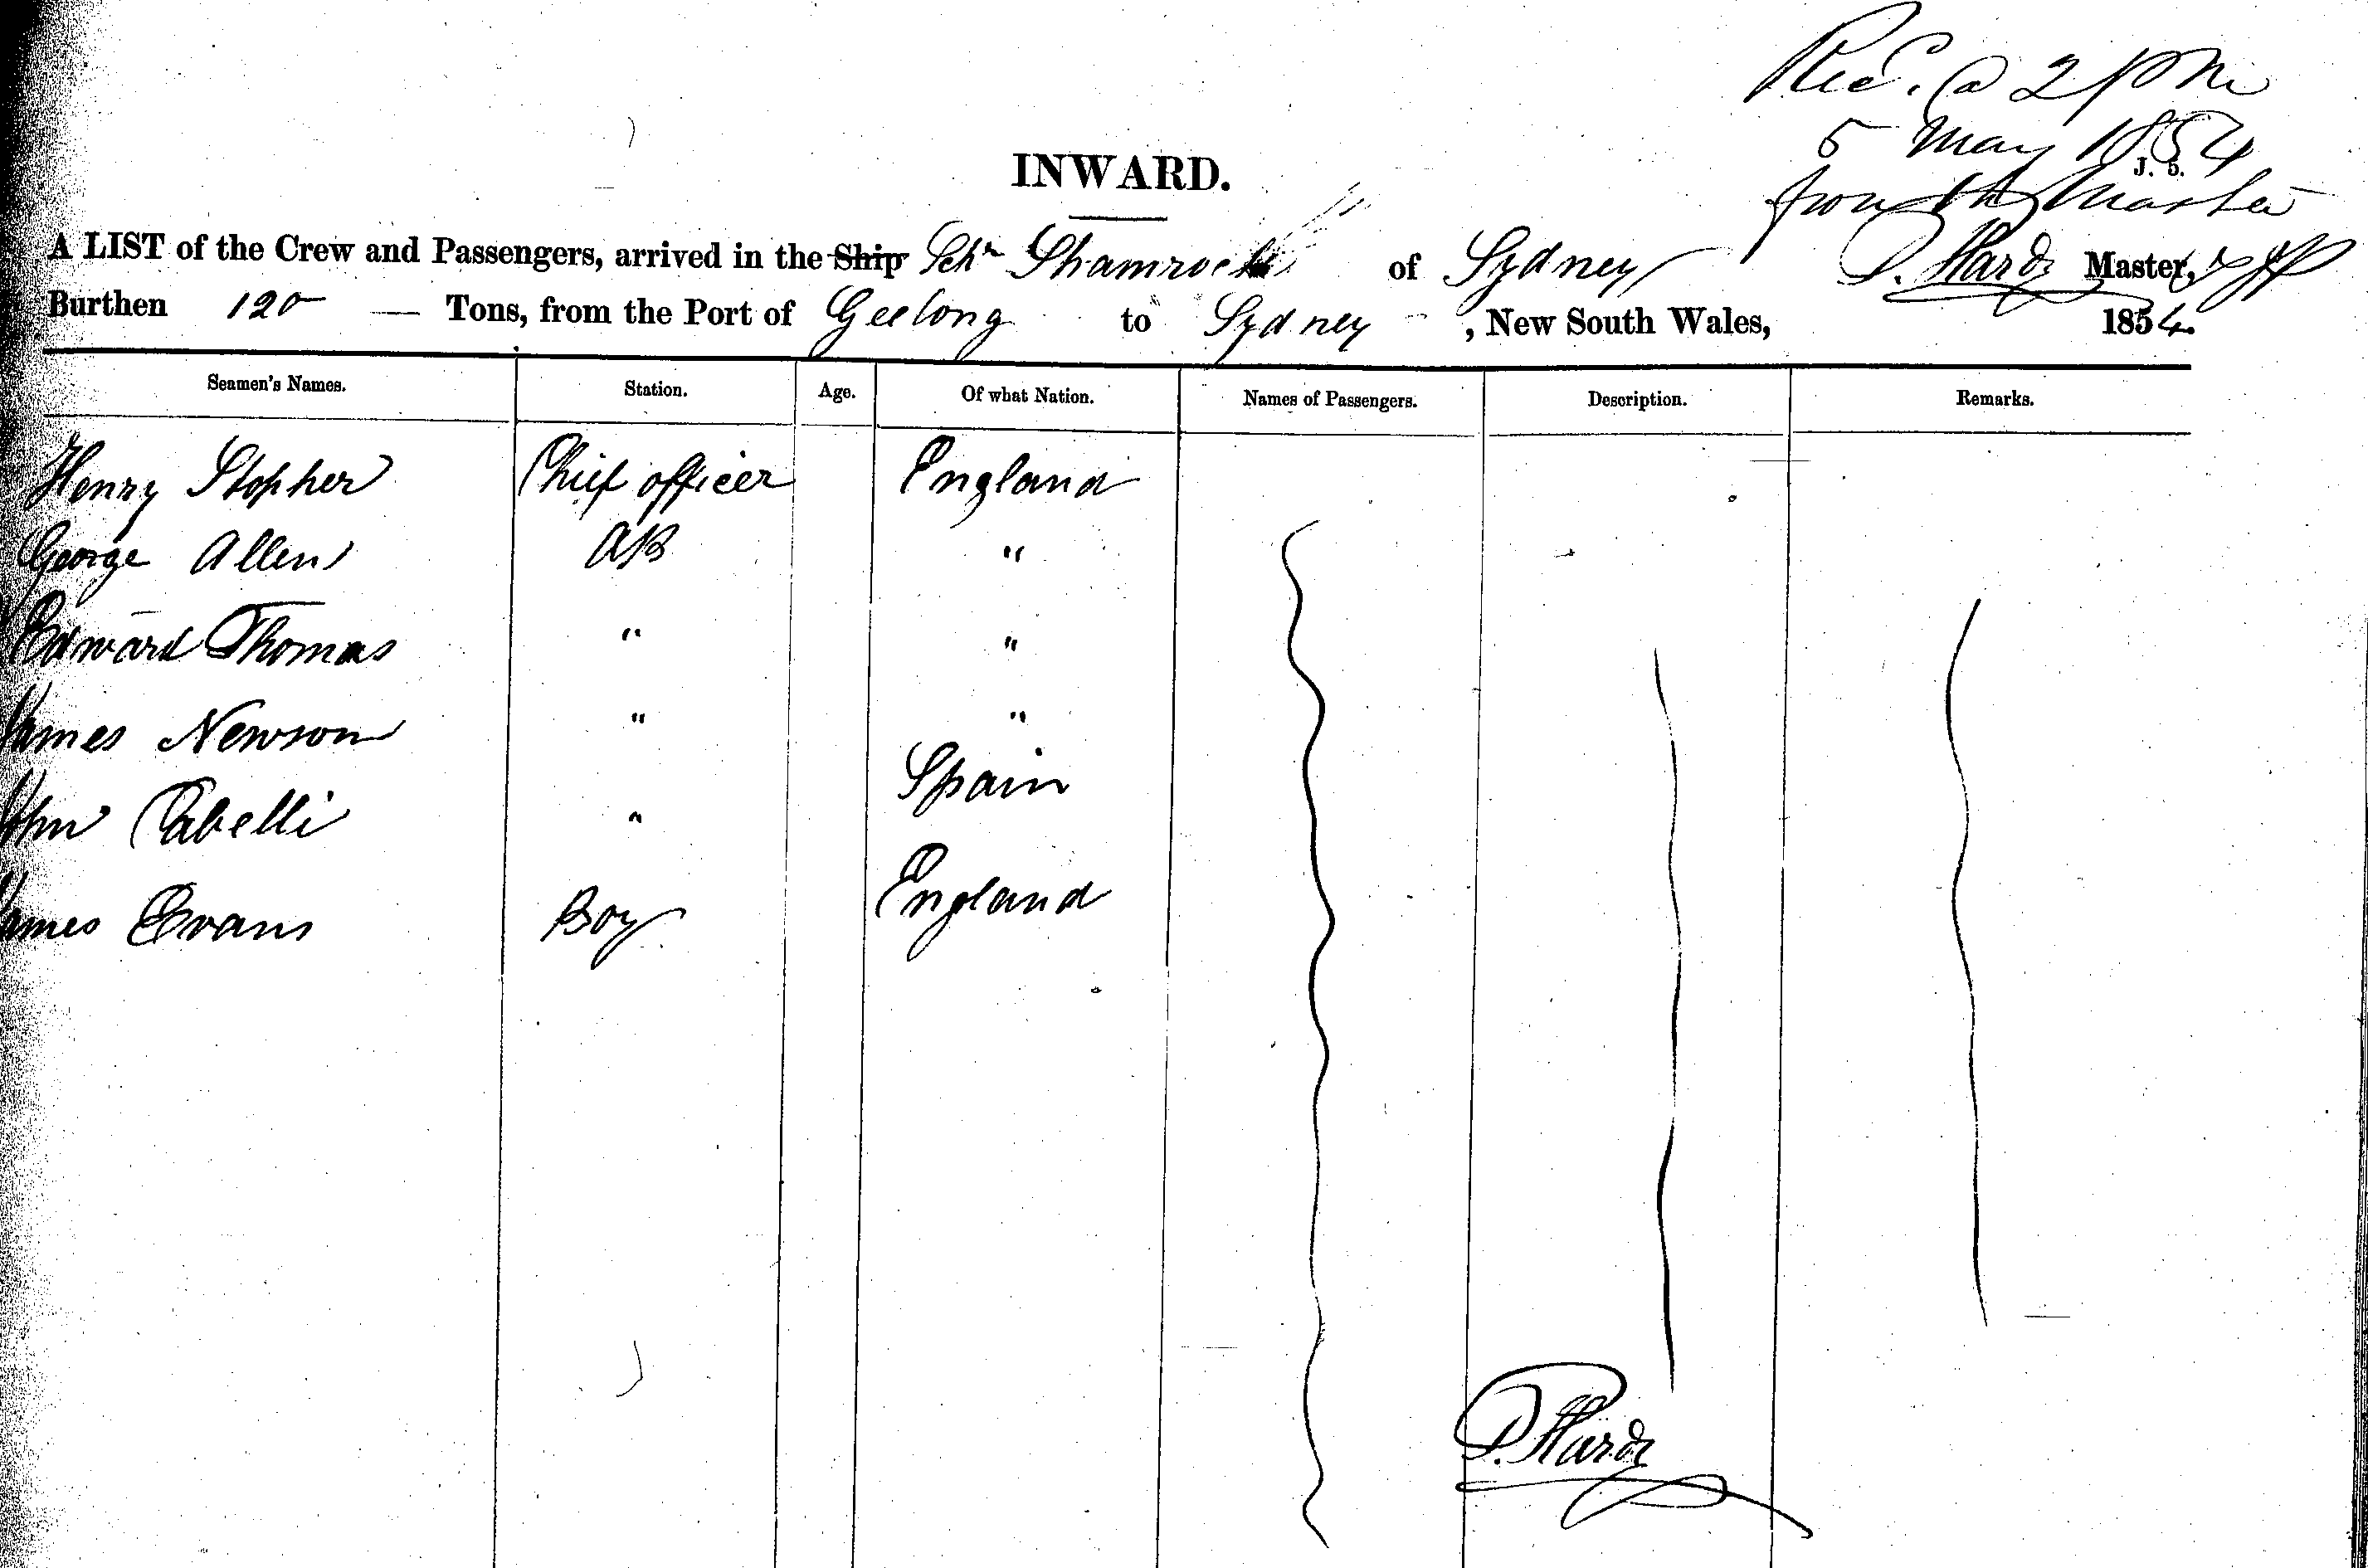 Recd. @ 2 pm
5 May 1854
J. 5.
from the Master
INWARD.
A LIST of the Crew and Passengers, arrived in the Ship Schr Shamrock of Sydney P. Hardy Master,
Burthen 120 — Tons, from the Port of Geelong to Sydney, New South Wales, 1854.
Seamen's Names. Station. Age. Of what Nation. Names of Passengers. Description. Remarks.
Henry Stopher Chief officer England
George Allen AB "
Edward Thomas " "
James Newson " "
John Cabelli " Spain
James Evans Boy England
P. Hardy